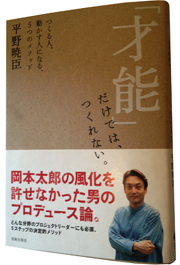 「才能」
だけでは、
つくれない。
つくる人、
動かす人になる、
5つのメソッド
平野暁臣
岡本太郎の風化を
許せなかった男の
プロデュース論。
どんな分野のプロジェクトリーダーにも必須、
5ステップの決定的メソッド